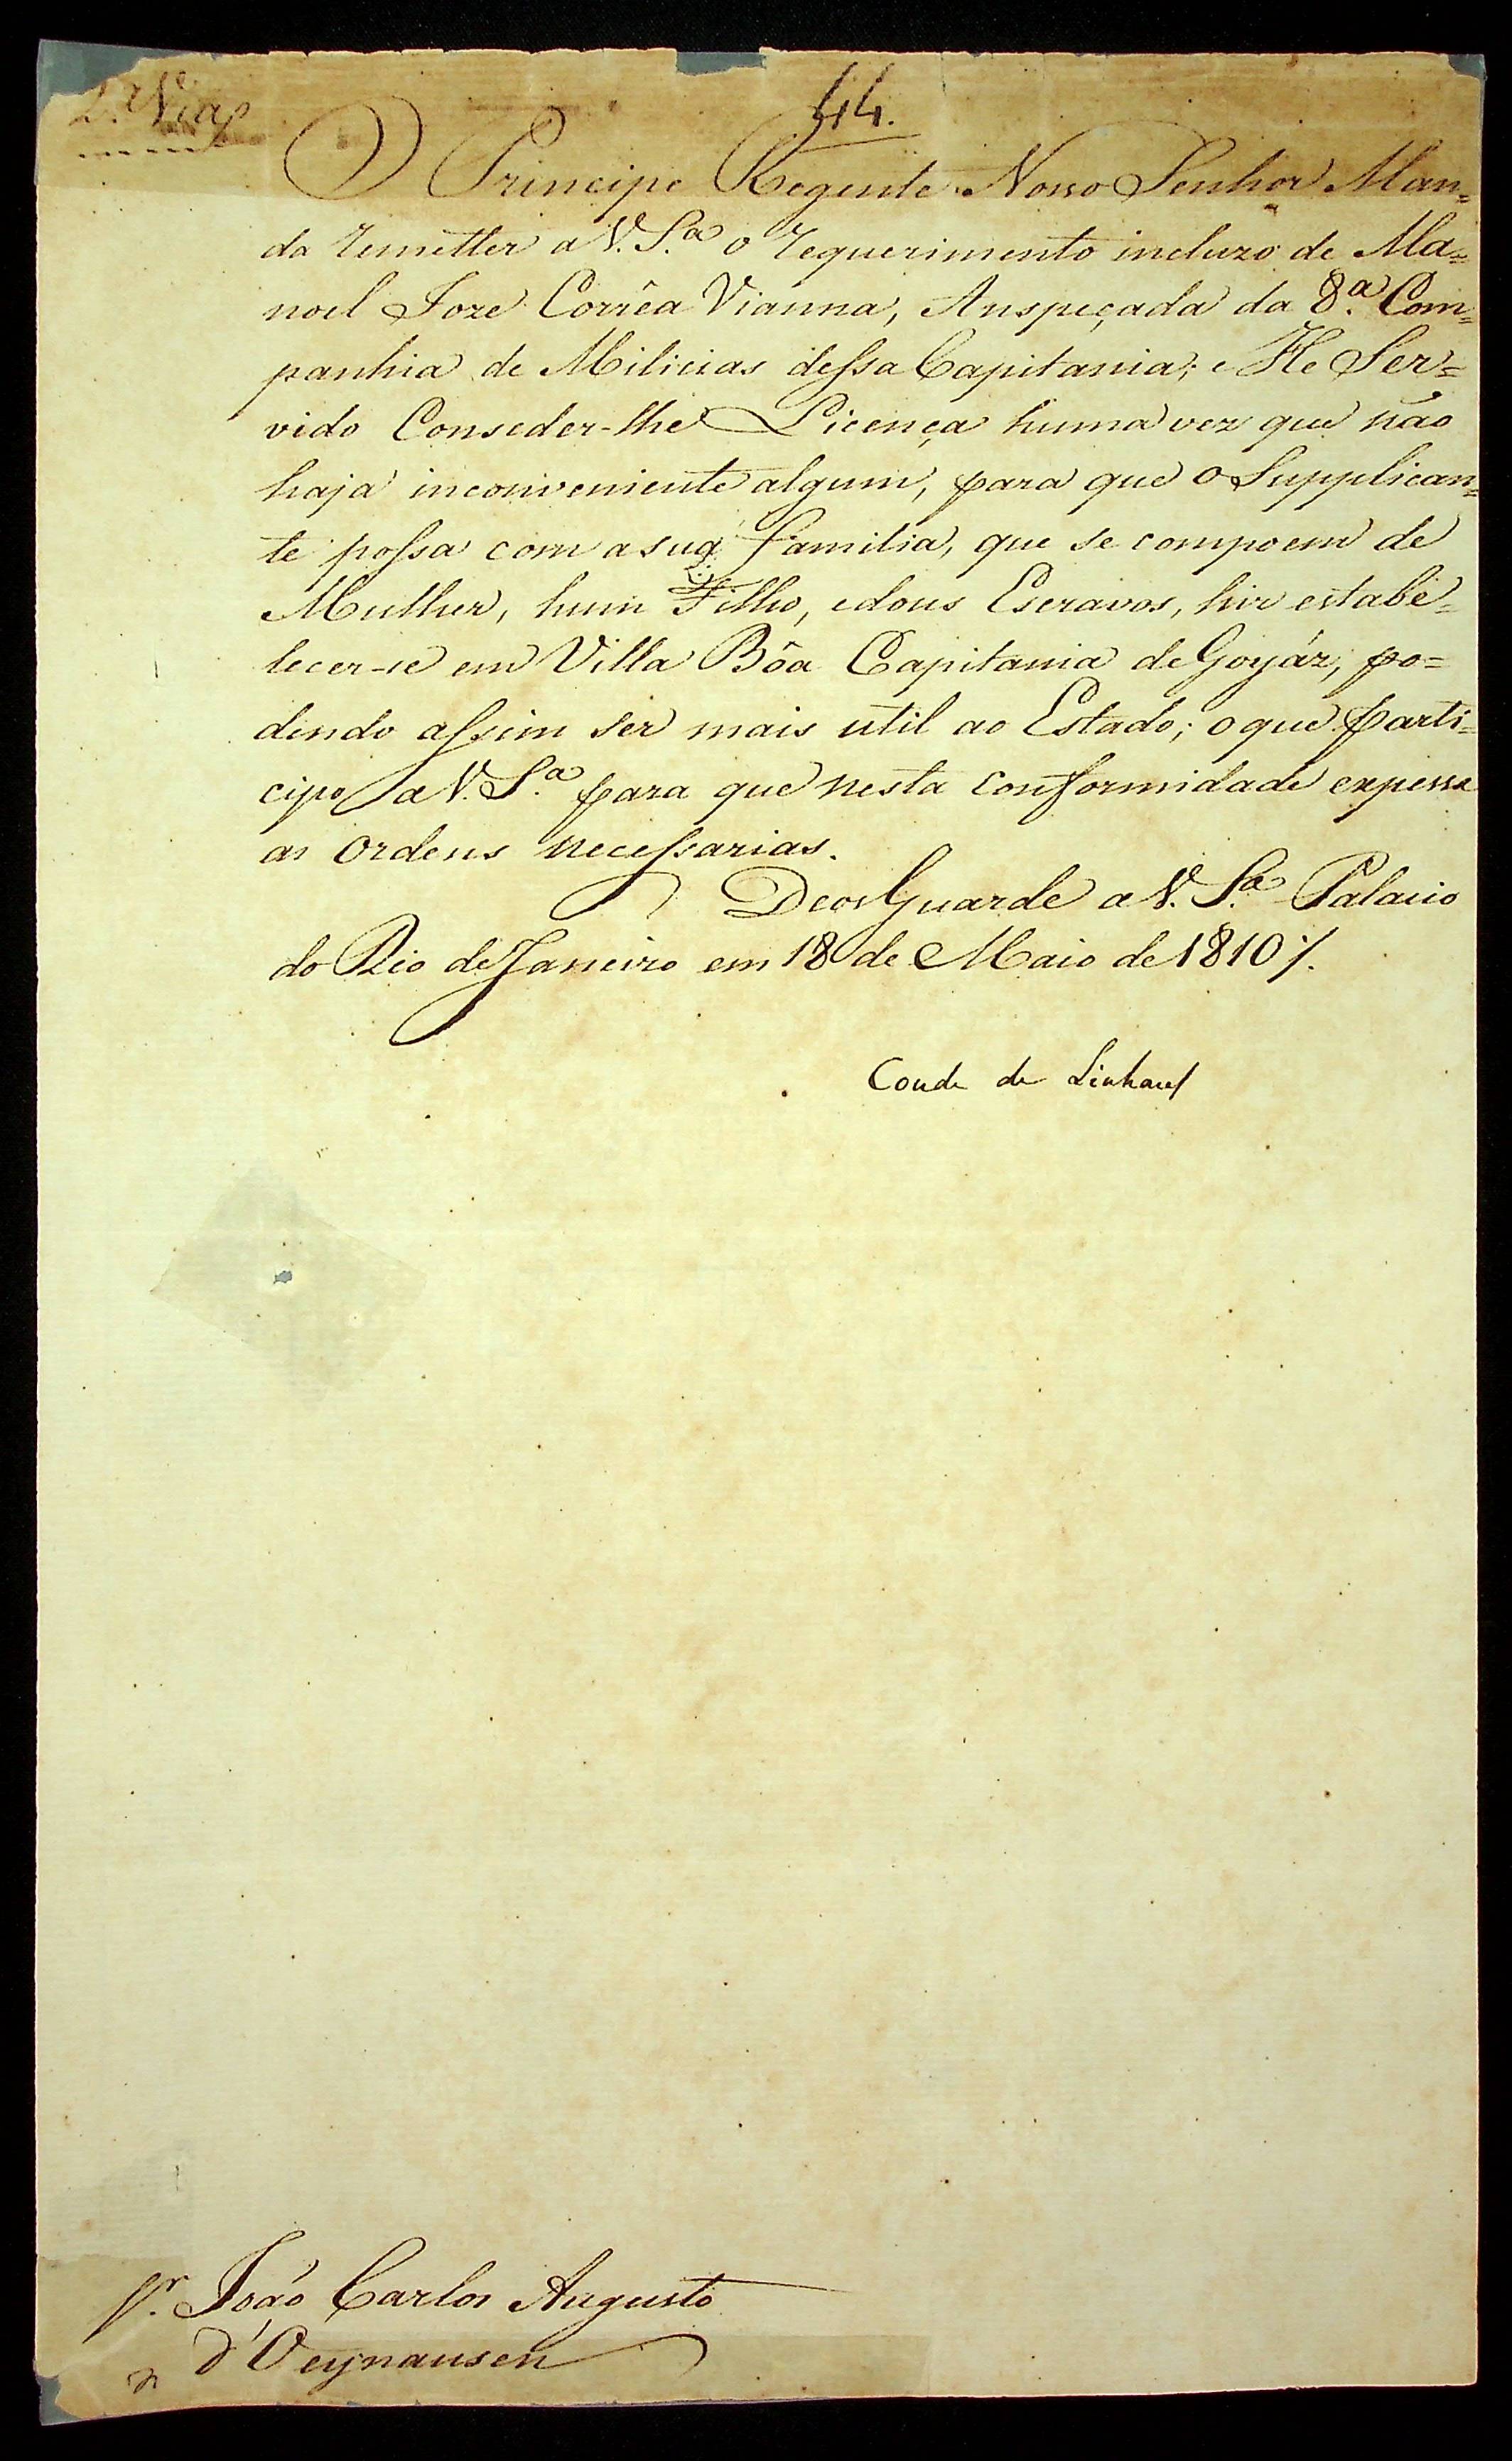 2.ª Via
44.
O Principe Regente Nosso Senhor Man=
da remetter a V. S.ª o requerimento incluzo de Ma=
noel Joze Corrêa Vianna, Anspeçada da 8.ª Com=
panhia de Milicias deſsa Capitania; e He Ser=
vido Conseder-lhe Licença huma vez que não
haja inconveniente algum, para que o Supplican=
te poſsa com a sua familia, que se compoem de
Mulher, hum Filho, e dous Escravos, hir estabe=
lecer-se em Villa Bôa Capitania de Goyáz, po=
dendo aſsim ser mais util ao Estado; o que parti=
cipo a V. S.ª para que nesta conformidade expessa
as ordens neceſsarias.
Deos Guarde a V. S.ª Palacio
do Rio de Janeiro em 18 de Maio de 1810 ∕.
Conde de Linhares
Sr. João Carlos Augusto
d'Oeynausen